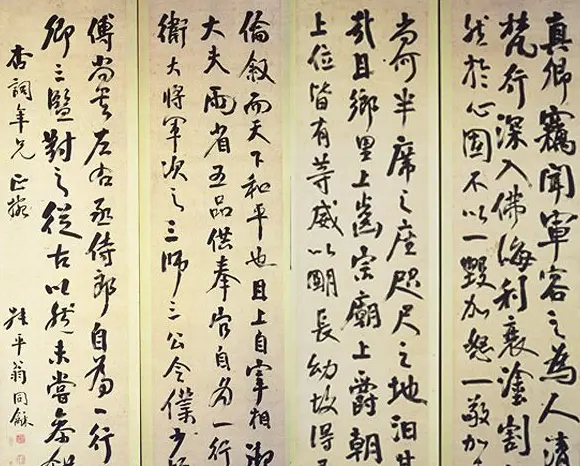 真卿竊聞軍容之為人清
梵行深入佛海利衰塗割
然於心固不以一毀加怒一敬加
尚何半席之座咫尺之地汨其
哉且鄉里上齒宗廟上爵朝
上位皆有等威以朙長幼故得
倫敘而天下和平也且上自宰相御
大夫兩省五品供奉官自為一行
衛大將軍次之三師三公令僕少
傅尚書左右丞侍郎自為一行
卿三監對之從古以然未嘗參
杏詞年兄正
叔平翁同龢